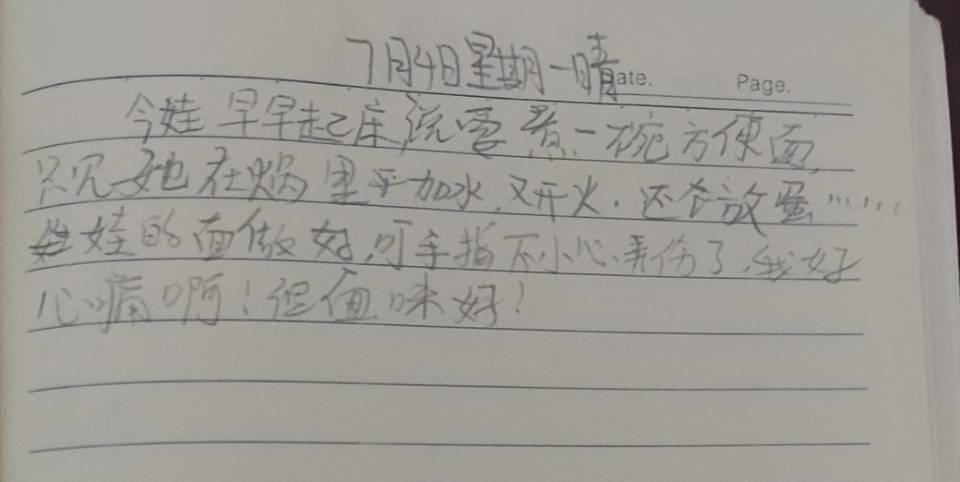 7月4日星期一晴 ate. Page.
今娃早早起床,说要煮一碗方便面,
只见她在锅里平加水,又开火,还会放蛋……
娃的面做好,可手指不小心弄伤了,我好
心痛啊!但面味好!